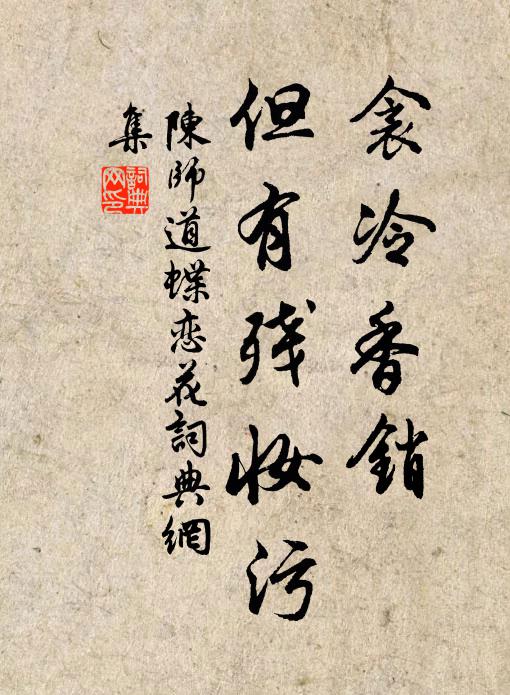 衾冷香銷
但有残妝污
陳師道蝶恋花詞典網
集
詞典網印